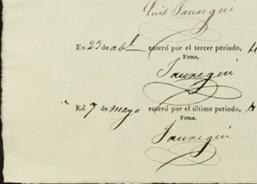 Luis Jauregui
En 23 de abl enteró por el tercer periodo,
Firma,
Jauregui
En 7 de mayo enteró por el último periodo,
Firma.
Jauregui